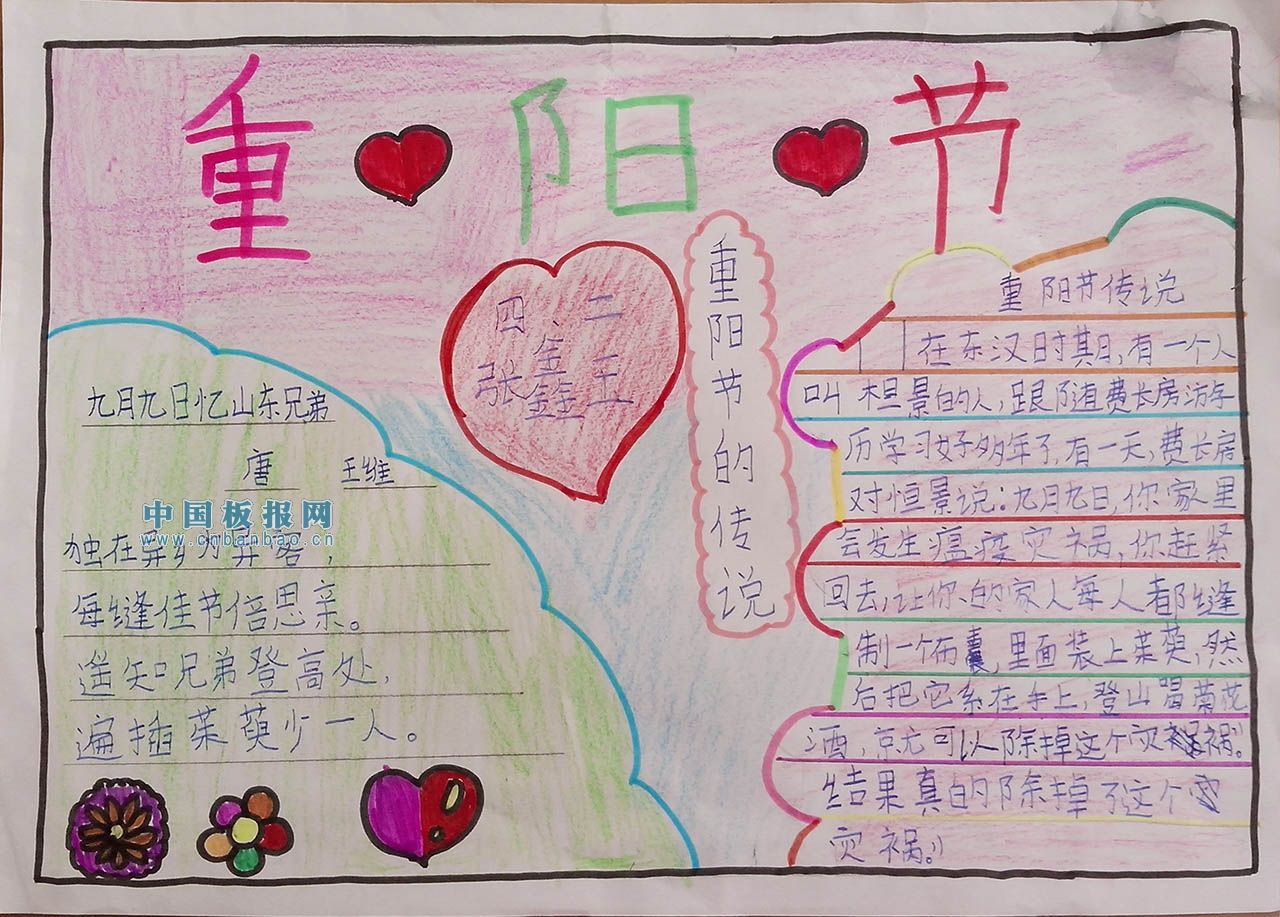 重阳节
四、二
张鑫王
重阳节的传说
九月九日忆山东兄弟
唐 王维
中国板报网
www.cnbanbao.cn
独在异乡为异客，
每缝佳节倍思亲。
遥知兄弟登高处，
遍插茱萸少一人。
重阳节传说
在东汉时期，有一个人
叫桓景的人，跟随费长房游学
历学习好多年了，有一天，费长房
对恒景说：九月九日，你家里
会发生瘟疫灾祸，你赶紧
回去，让你的家人每人都缝
制一个布囊，里面装上茱萸，然
后把它系在手上，登山喝菊花
酒，就可以除掉这个灾祸。
结果真的除掉了这个
灾祸。